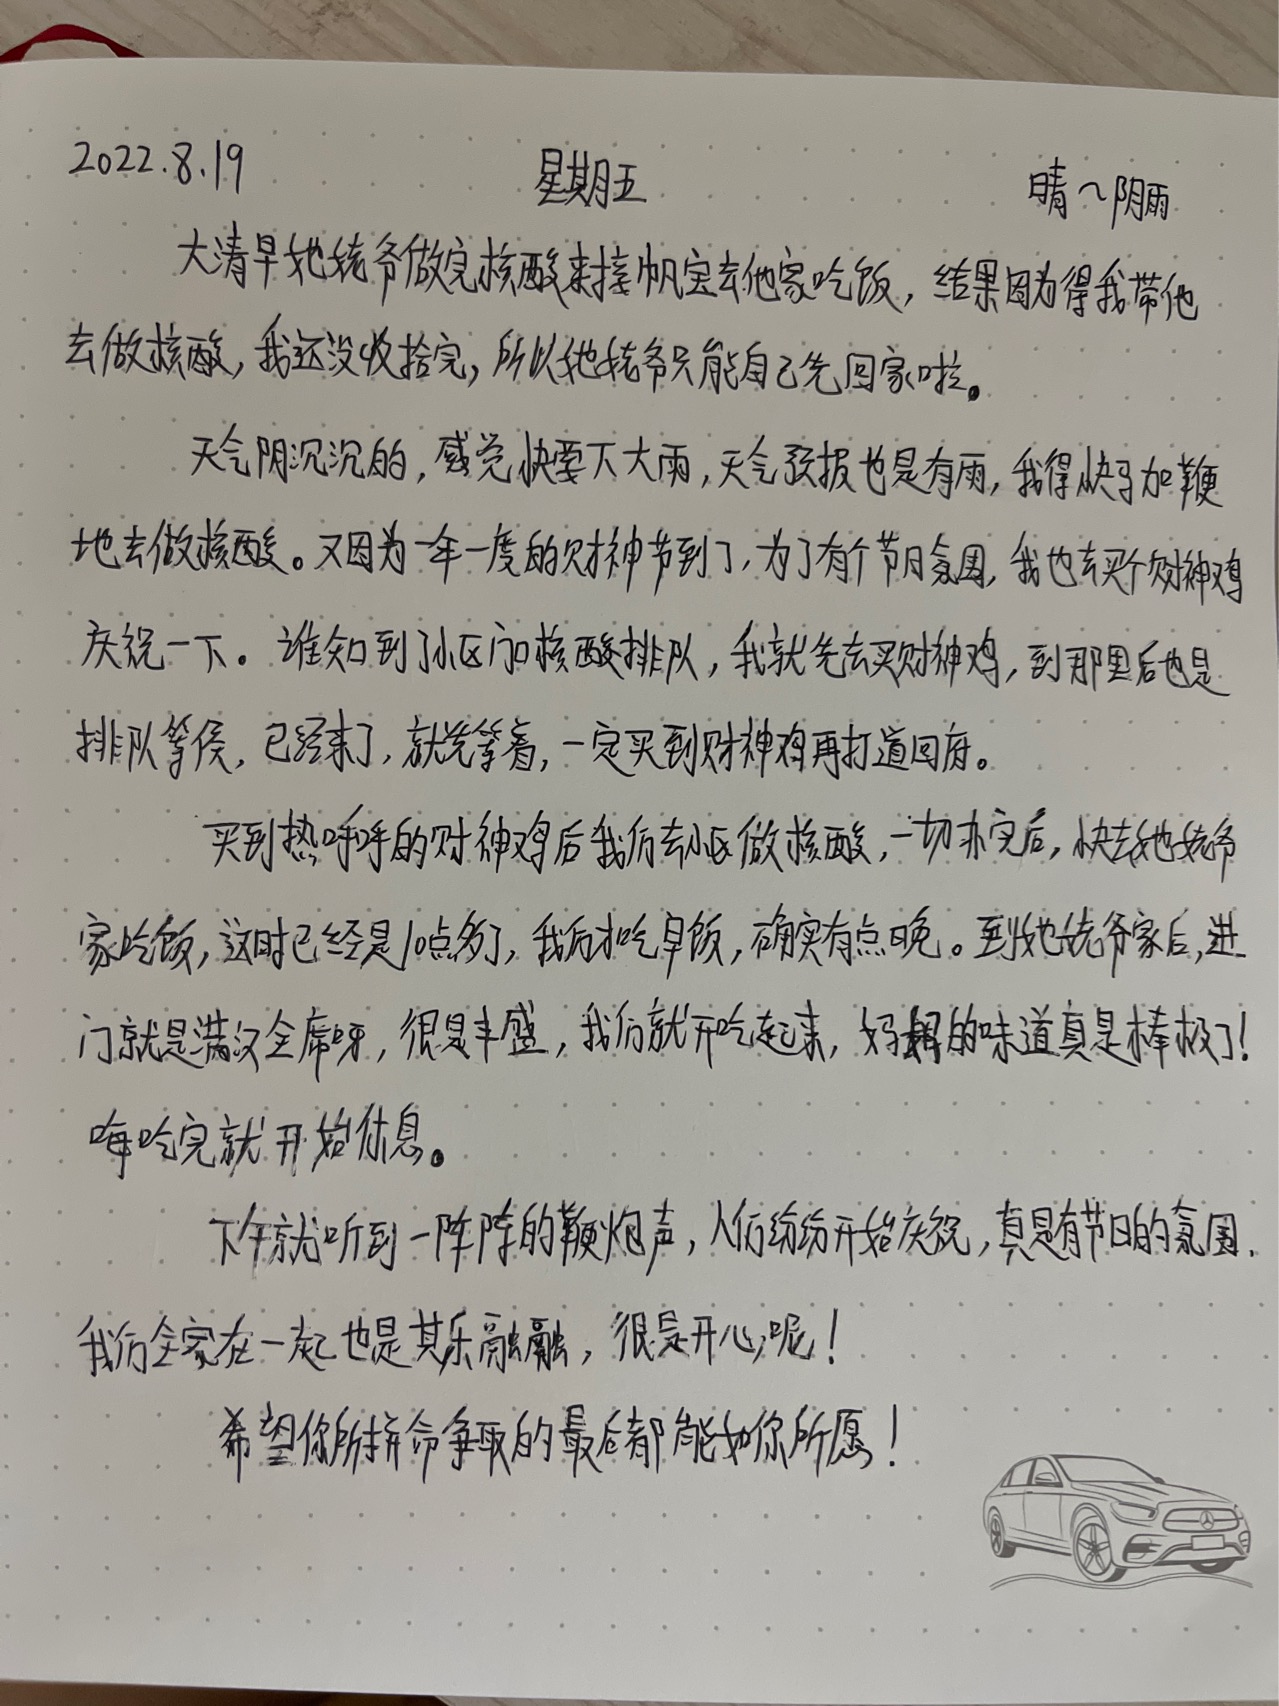 2022.8.19 星期五 晴~阴雨
大清早她姥爷做完核酸来接帆宝去他家吃饭，结果因为得我带他
去做核酸，我还没收拾完，所以她姥爷只能自己先回家啦。
天气阴沉沉的，感觉快要下大雨，天气预报也是有雨，我得快马加鞭
地去做核酸。又因为一年一度的财神节到了，为了有个节日氛围，我也去买个财神鸡
庆祝一下。谁知到了小区门口核酸排队，我就先去买财神鸡，到那里后也是
排队等侯，已经来了，就先等着，一定买到财神鸡再打道回府。
买到热呼呼的财神鸡后我们去小区做核酸，一切办完后，快去她姥爷
家吃饭，这时已经是10点多了，我们才吃早饭，确实有点晚。到她姥爷家后，进
门就是满汉全席呀，很是丰盛，我们就开吃起来，妈妈的味道真是棒极了！
嗨吃完就开始休息。
下午就听到一阵阵的鞭炮声，人们纷纷开始庆祝，真是有节日的氛围．
我们全家在一起也是其乐融融，很是开心呢！
希望你所拼命争取的最后都能如你所愿！